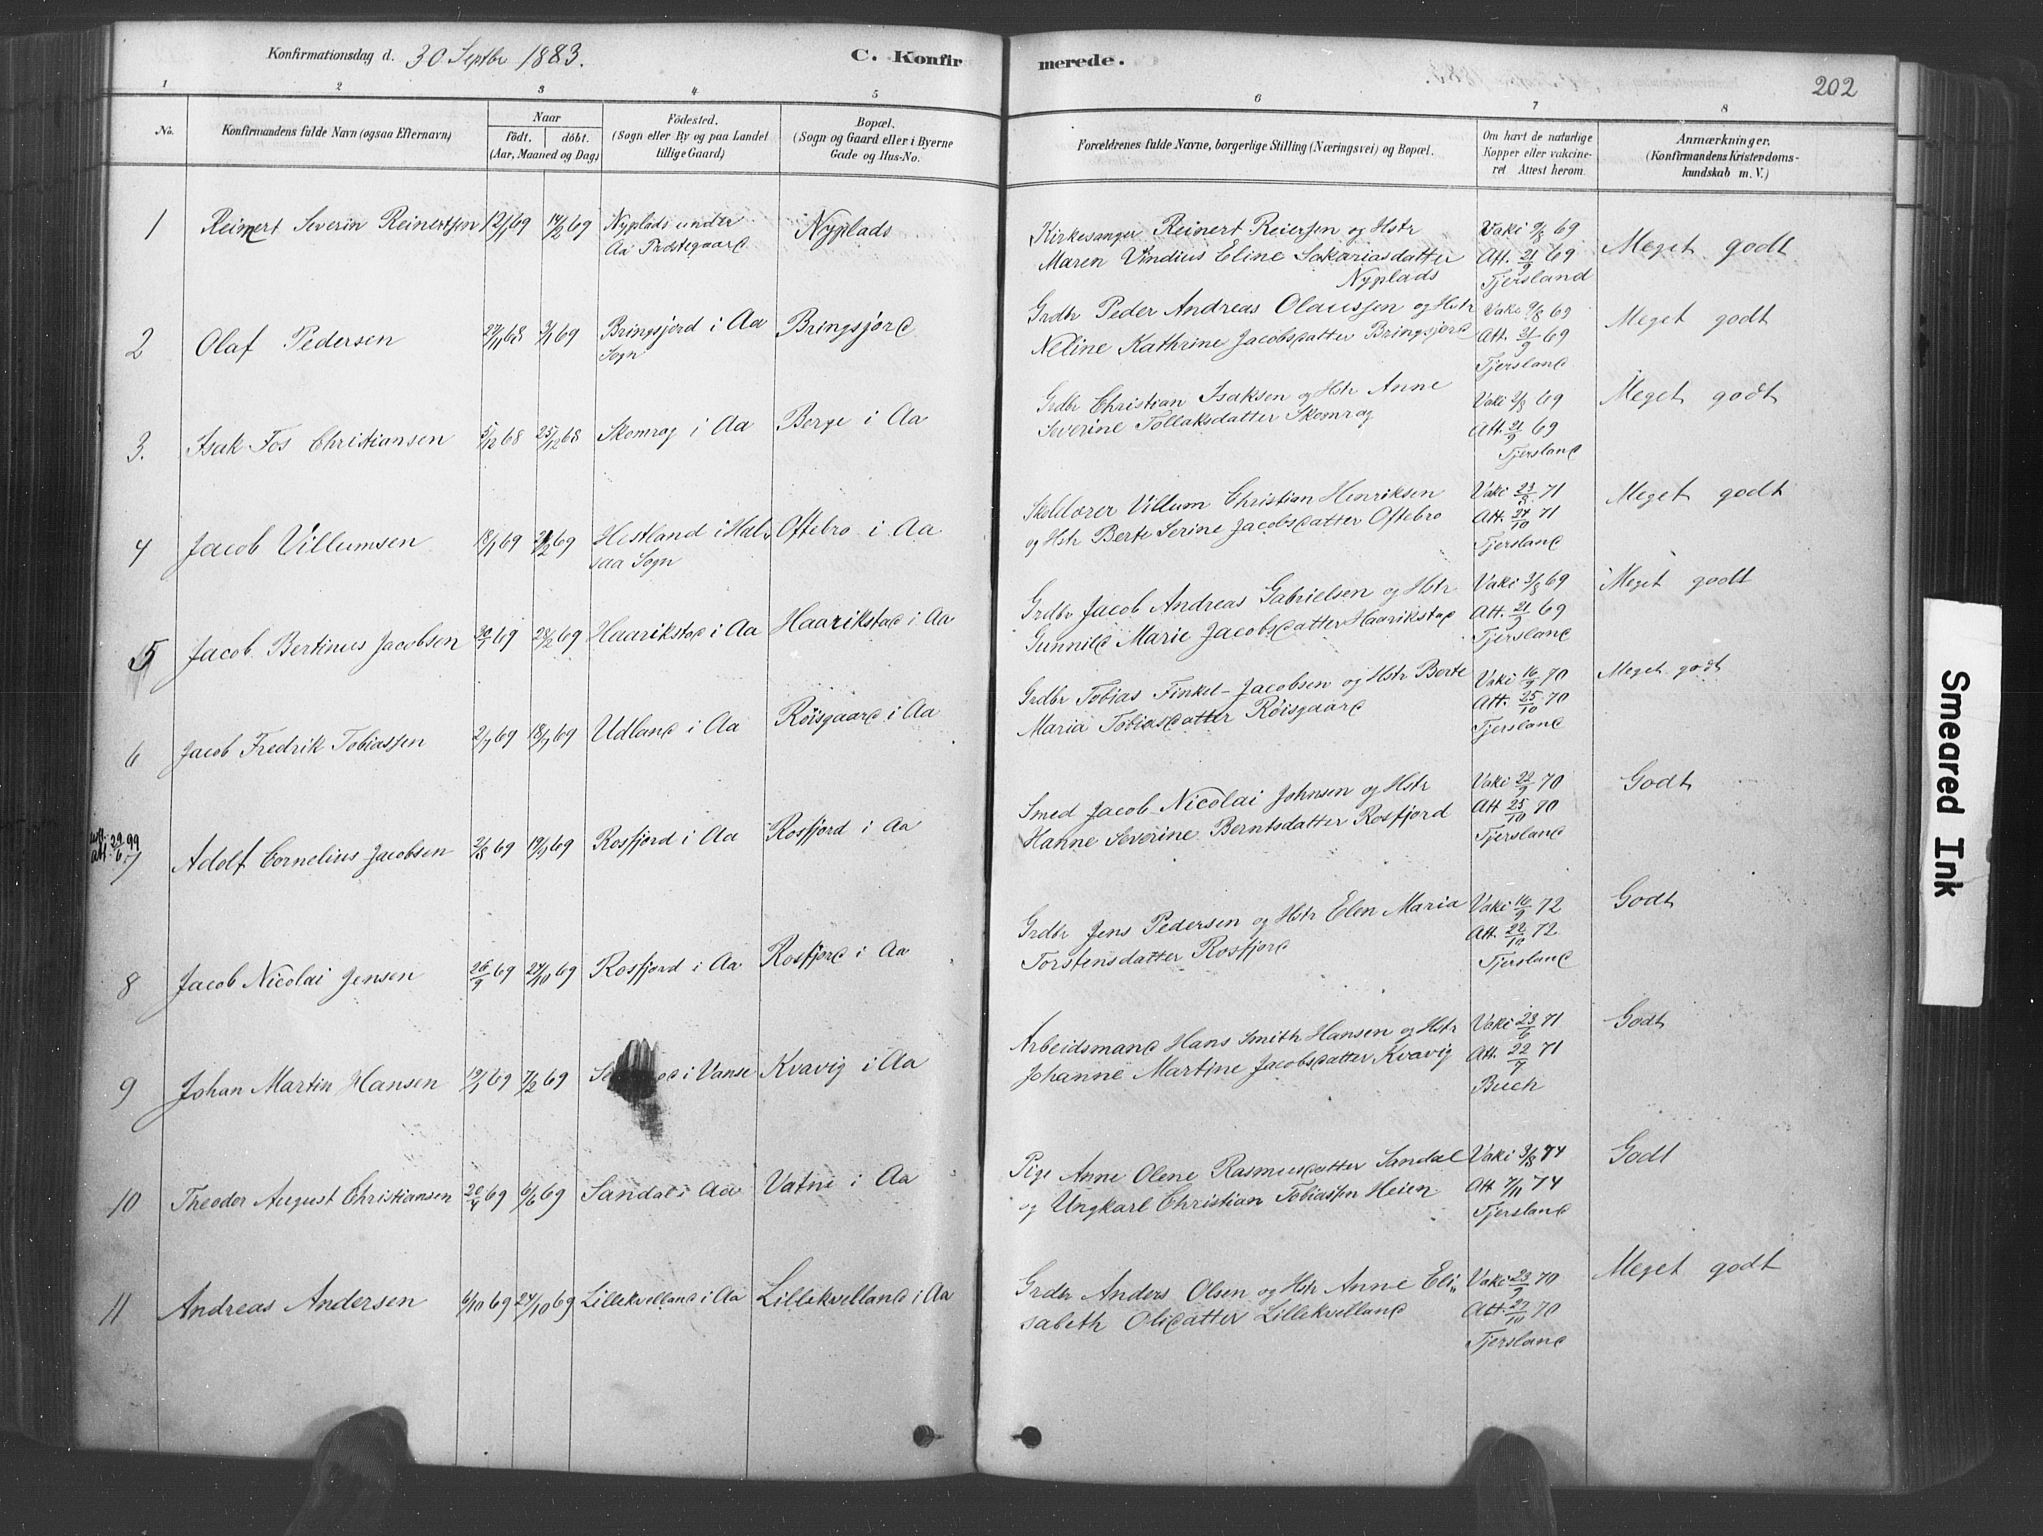 Konfirmationsdag d. 30 Septbr 1883.
C. Konfirmerede.
202
1 2 3 4 5 6 7 8
No.
Konfirmandens fulde Navn (ogsaa Efternavn)
Naar
födt. döbt.
(Aar, Maaned og Dag)
Födested.
(Sogn eller By og paa Landet
tillige Gaard)
Bopæl.
(Sogn og Gaard eller i Byerne
Gade og Hus-No.
Forældrenes fulde Navne, borgerlige Stilling (Næringsvei) og Bopæl.
Om havt de naturlige
Kopper eller vakcine-
ret Attest herom.
Anmærkninger.
(Konfirmandens Kristendoms-
kundskab m. V.)
1 Reinert Severin Reinertsen 12/1 69 14/2 69 Nyplads under
Aa Præstegaard
Nyplads
Kirkesanger Reinert Reiersen og Hstr
Maren Vindius Eline Sakariasdatter
Nyplads
Vaki 9/8 69
Att. 21/9 69
Tjersland
Meget godt
2 Olaf Pedersen 27/11 68 3/1 69 Bringsjord i Aa
Sogn
Bringsjord
Grdbr Peder Andreas Olaussen og Hstr
Neline Kathrine Jacobsdatter Bringsjord
Vaki 9/8 69
Att. 21/9 69
Tjersland
Meget godt
3. Isak Fos Christiansen 5/12 68 25/12 68 Skomrag i Aa
Berge i Aa
Grdbr Christian Isaksen og Hstr Anne
Severine Tollaksdatter Skomrag
Vaki 2/8 69
Att. 21/9 69
Tjersland
Meget godt
4 Jacob Villumsen 18/1 69 21/2 69 Hestland i Hals
saa Sogn
Oftebro i Aa
Skolelærer Villum Christian Henriksen
og Hstr Berte Serine Jacobsdatter Oftebro
Vaki 23/8 71
Att. 27/10 71
Tjersland
Meget godt
5 Jacob Bertinus Jacobsen 30/1 69 28/2 69 Haarikstad i Aa
Haarikstad i Aa
Grdbr Jacob Andreas Gabrielsen og Hstr
Gunnild Marie Jacobsdatter Haarikstad
Vaki 3/8 69
Att. 21/9 69
Tjersland
Meget godt
6 Jacob Fredrik Tobiassen 2/7 69 18/7 69 Udland i Aa
Röisgaard i Aa
Grdbr Tobias Finkel Jacobsen og Hstr Berte
Maria Tobiasdatter Röisgaard
Vaki 16/9 70
Att. 25/10 70
Tjersland
Meget godt
att. 29/6 99
7 Adolf Cornelius Jacobsen 2/8 69 19/9 69 Rosfjord i Aa
Rosfjord i Aa
Smed Jacob Nicolai Johnsen og Hstr
Hanne Severine Berntsdatter Rosfjord
Vaki 22/9 70
Att 25/10 70
Tjersland
Godt
8 Jacob Nicolai Jensen 26/9 69 24/10 69 Rosfjord i Aa
Rosfjord i Aa
Grdbr Jens Pedersen og Hstr Elen Maria
Torstensdatter Rosfjord
Vaki 16/9 72
Att. 22/10 72
Tjersland
Godt
9 Johan Martin Hansen 12/1 69 7/2 69 i Vanse
Kvavig i Aa
Arbeidsmand Hans Smith Hansen og Hstr
Johanne Martine Jacobsdatter Kvavig
Vaki 23/6 71
Att. 22/9 71
Buch
Godt
10 Theodor August Christiansen 20/4 69 6/6 69 Sandal i Aa
Vatne i Aa
Pige Anne Olene Rasmusdatter Sandal
og Ungkarl Christian Tobiassen Heien
Vaki 3/8 74
Att 7/11 74
Tjersland
Godt
11 Andreas Andersen 6/10 69 24/10 69 Lillekvelland i Aa
Lillekvelland i Aa
Grdbr Anders Olsen og Hstr Anne Eli-
sabeth Olsdatter Lillekvelland
Vaki 23/9 70
Att 27/10 70
Tjersland
Meget godt
Smeared Ink